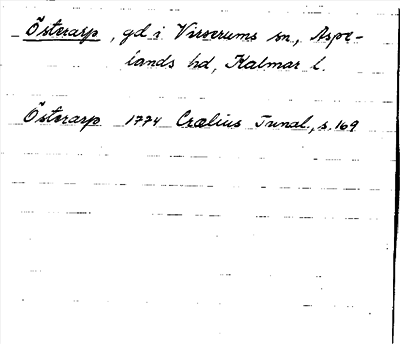 Österarp, gd i Virserums sn., Aspe-
lands hd, Kalmar l.
Österarp 1774 Crælius Tunal., s. 169